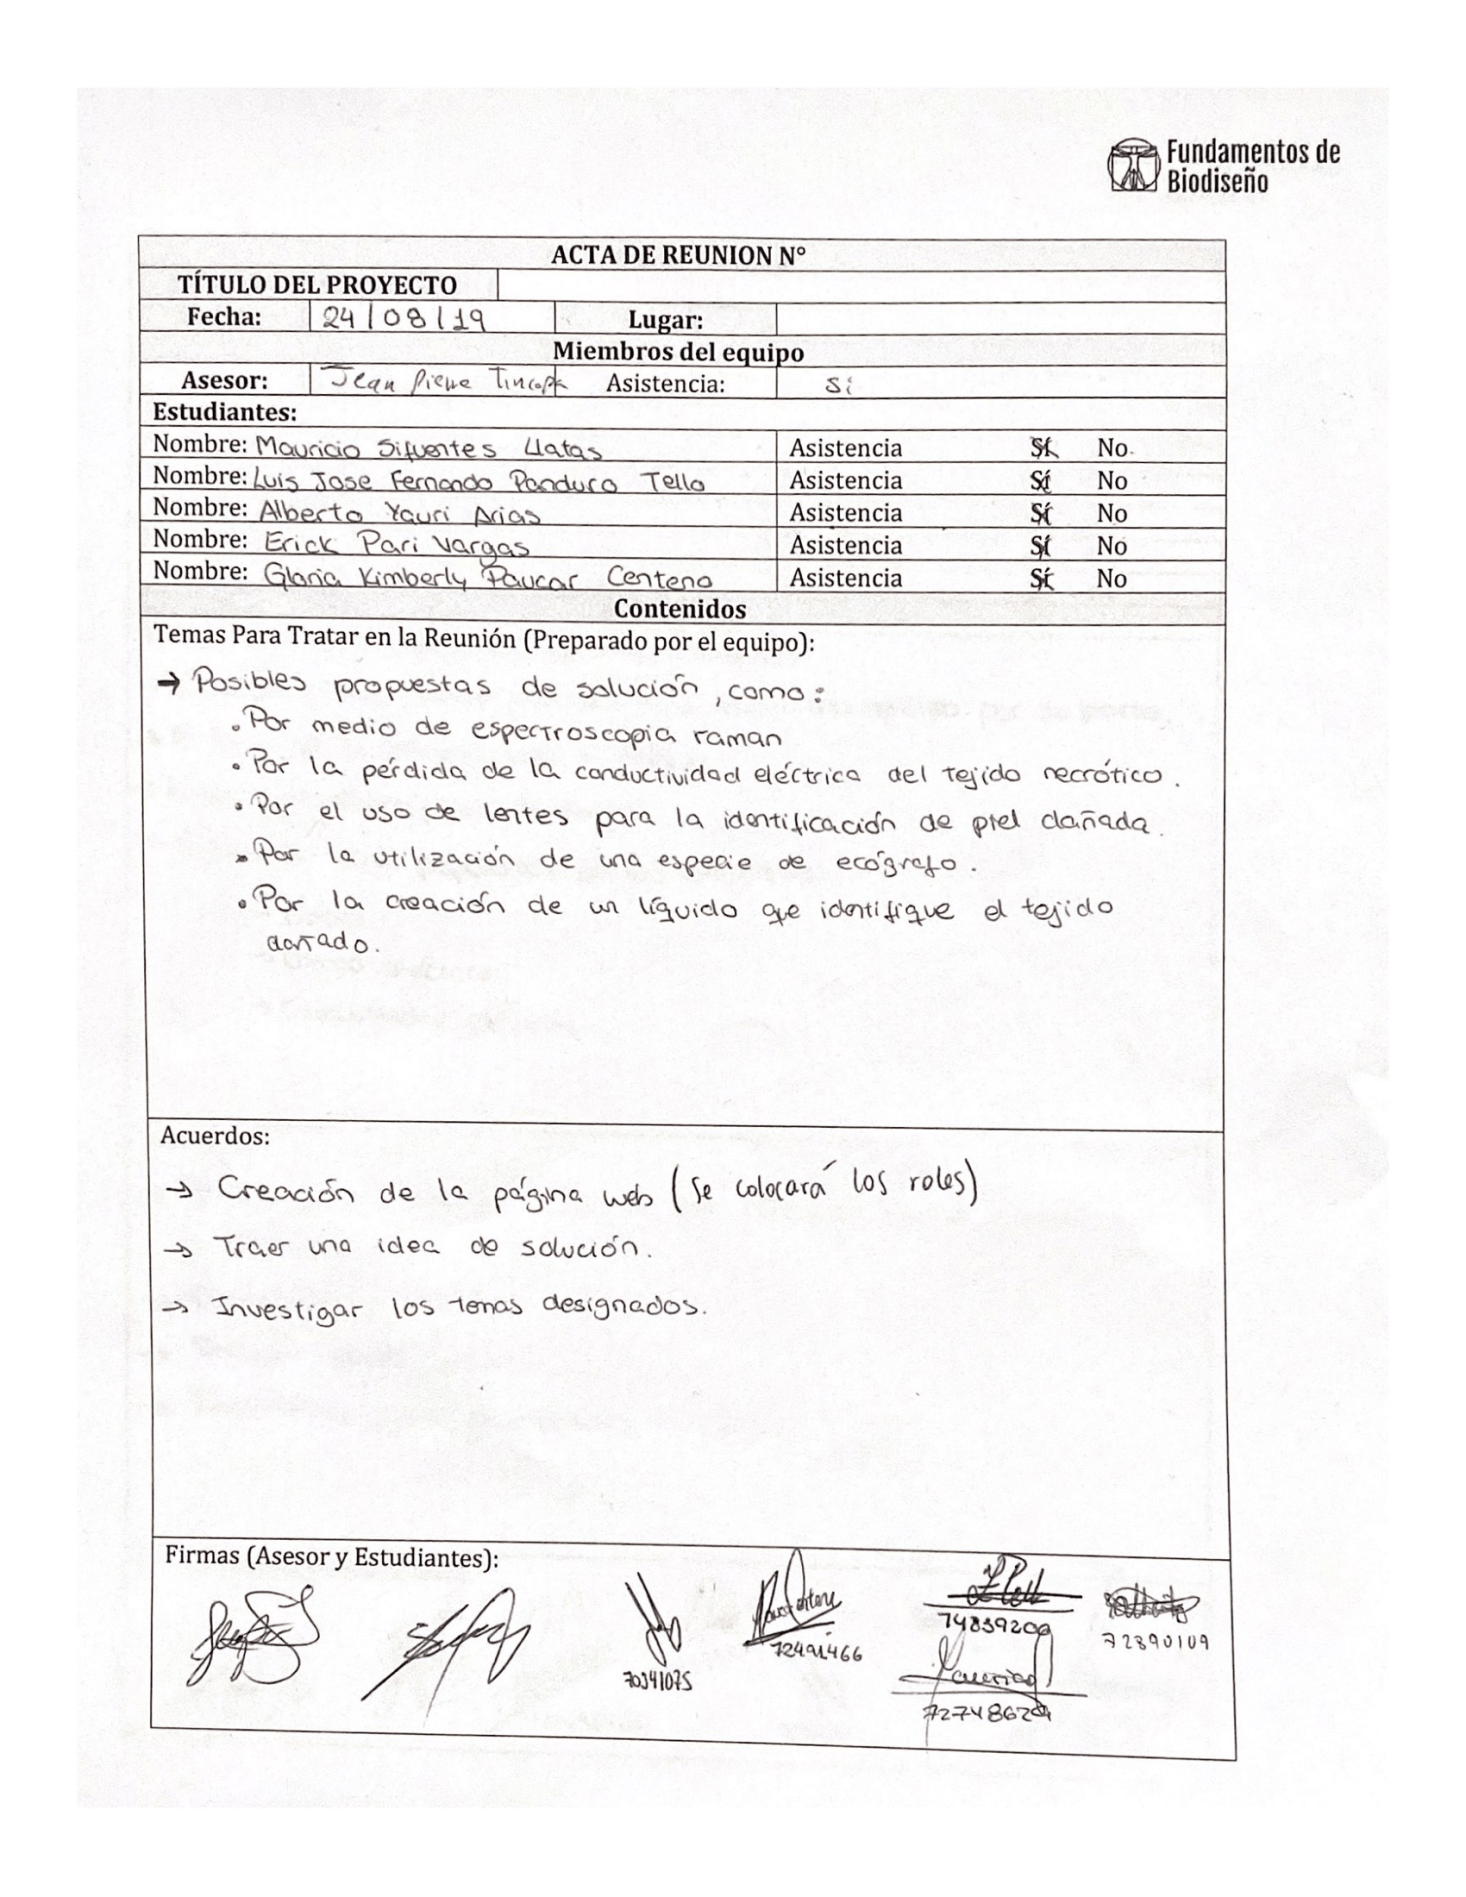 Fundamentos de
Biodiseño
ACTA DE REUNION N°
TÍTULO DEL PROYECTO
Fecha: 24/08/19 Lugar:
Miembros del equipo
Asesor: Jean Pierre Tincopa Asistencia: Sí
Estudiantes:
Nombre: Mauricio Sifuentes Llatas Asistencia Sí No
Nombre: Luis Jose Fernando Panduro Tello Asistencia Sí No
Nombre: Alberto Yauri Arias Asistencia Sí No
Nombre: Erick Pari Vargas Asistencia Sí No
Nombre: Gloria Kimberly Paucar Centeno Asistencia Sí No
Contenidos
Temas Para Tratar en la Reunión (Preparado por el equipo):
→ Posibles propuestas de solución, como:
• Por medio de espectroscopia raman
• Por la pérdida de la conductividad eléctrica del tejido necrótico.
• Por el uso de lentes para la identificación de piel dañada.
• Por la utilización de una especie de ecógrafo.
• Por la creación de un líquido que identifique el tejido
dañado.
Acuerdos:
→ Creación de la página web (Se colocará los roles)
→ Traer una idea de solución.
→ Investigar los temas designados.
Firmas (Asesor y Estudiantes):
74839200
72390109
70341075
72491466